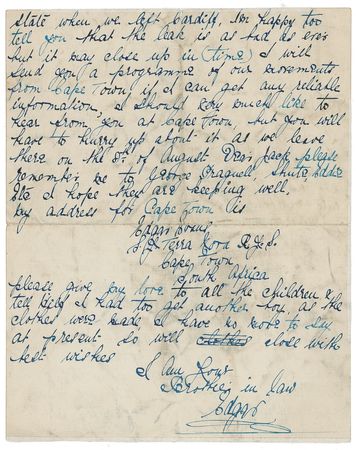 state when we left Cardiff, I'm happy too
tell you that the leak is as bad as ever
but it may close up in (time) I will
send you a programme of our movements
from Cape Town if I can get any reliable
information. I should very much like to
hear from you at Cape Town but you will
have to hurry up about it as we leave
there on the of August Dear Jack, please
remember me to George
Etc I hope they are keeping well.
my address for Cape Town is
Edgar Evans
S.Y. Terra Nova R.Y.S.
Cape Town
South Africa
please give my love to all the children &
tell I had too get another boy, as the
clothes were made I have no more to say
at present so will close with
best wishes
I Am Your
Brother in law
Edgar